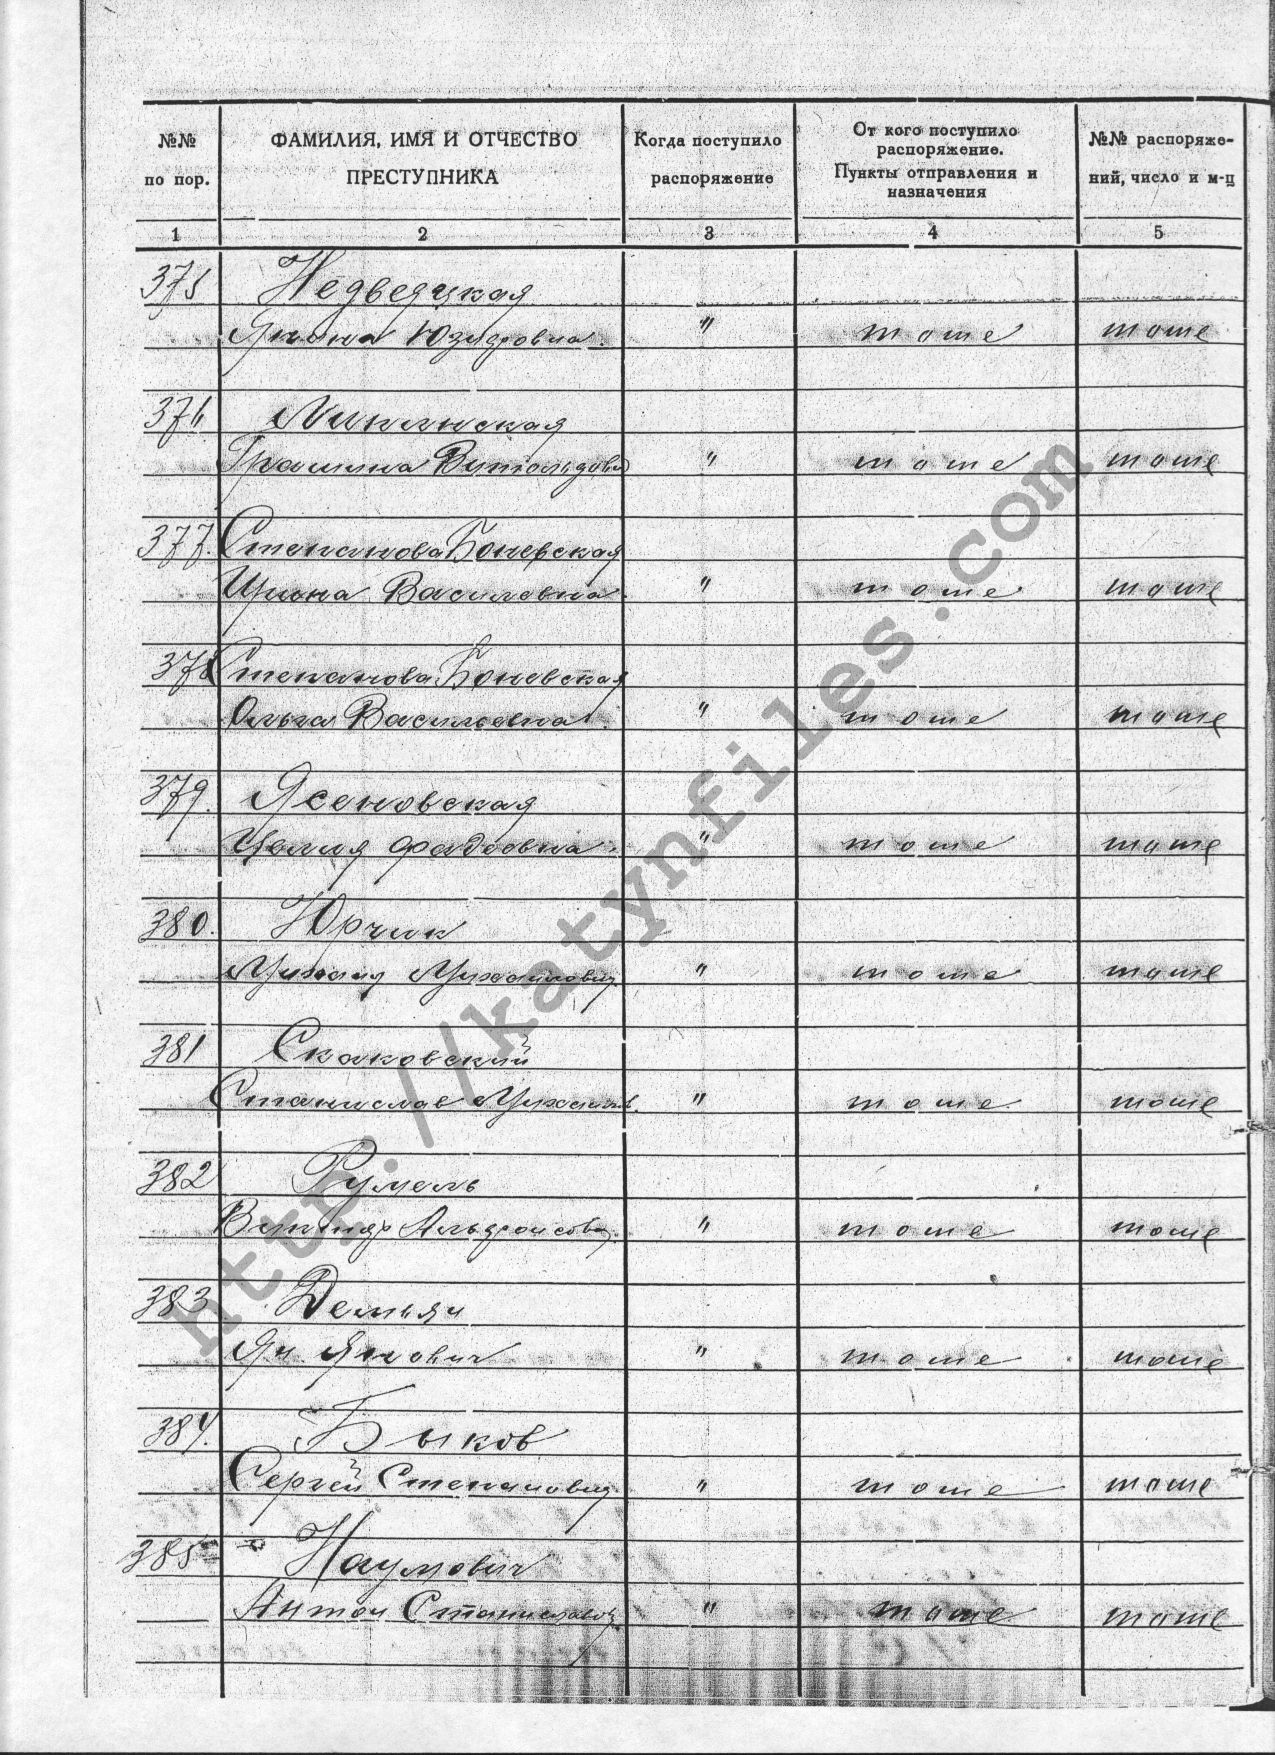 №№ по пор.
ФАМИЛИЯ, ИМЯ И ОТЧЕСТВО ПРЕСТУПНИКА
Когда поступило распоряжение
От кого поступило распоряжение. Пункты отправления и назначения
№№ распоряже-ний, число и м-ц
1 2 3 4 5
375 Недведцкая
Янина Юзефовна " тоже тоже
376
Витольдов " тоже тоже
377. Степанова Боневская
Ирина Васильевна " тоже тоже
378 Степанова Боневская
Ольга Васильевна " тоже тоже
379. Ясеновская
Фадеевна " тоже тоже
380. Юрчик
Михаил Михайлович " тоже тоже
381 Скаковский
Станислав Михайлов. " тоже тоже
382 Румель
Виктор Альфонсович " тоже тоже
383 Демьян
Ян Янович " тоже тоже
384. Быков
Сергей Степанович " тоже тоже
385 Наумович
Антон Станиславов " тоже тоже
http://katynfiles.com